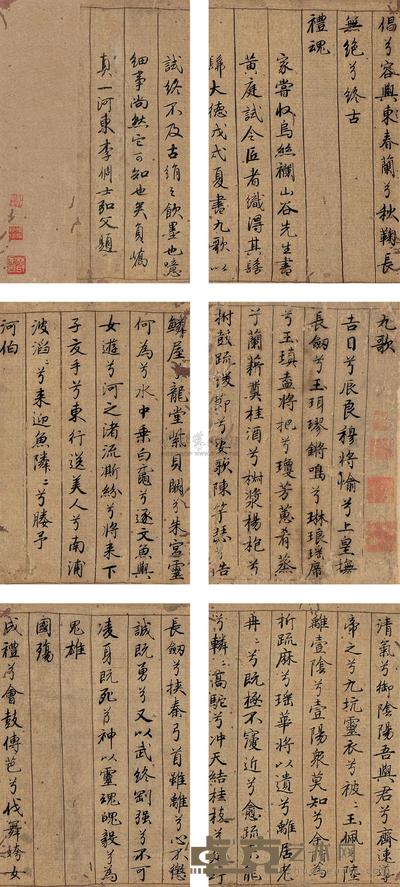 倡兮容與東春蘭兮秋鞠長
無絕兮終古
禮魂
家嘗収烏絲襴山谷先生書
黃庭試令匠者織得其語
歸大德戊戌夏書九歌以
試終不及古絹之飲墨也噫
細事尚然它可知也矣負嶠
真一河東李倜士弘父題
九歌
吉日兮辰良穆將愉兮上皇撫
長劔兮玉珥璆鏘鳴兮琳琅瑤席
兮玉瑱盍將把兮瓊芳蕙肴蒸
兮蘭藉奠桂酒兮椒漿楊枹兮
拊鼓疏緩節兮安歌陳竽瑟兮浩
鱗屋兮龍堂紫貝闕兮朱宮靈
何為兮水中乗白黿兮逐文魚與
女遊兮河之渚流澌紛兮將来下
子交手兮東行送美人兮南浦
波滔〻兮来迎魚隣〻兮媵予
河伯
清氣兮御陰陽吾與君兮齊速導
帝之兮九坑靈衣兮被〻玉佩兮陸
離壹陰兮壹陽衆莫知兮余為
折疏麻兮瑤華將以遺兮離居老
冉〻兮既極不寖近兮愈疏龍
兮轔〻高駝兮冲天結桂枝兮竚
長劔兮挾秦弓首雖離兮心不懲
誠既勇兮又以武終剛强兮不可
凌身既死兮神以靈魂魄毅兮為
鬼雄
國殤
成禮兮會鼓傳芭兮代舞姱女